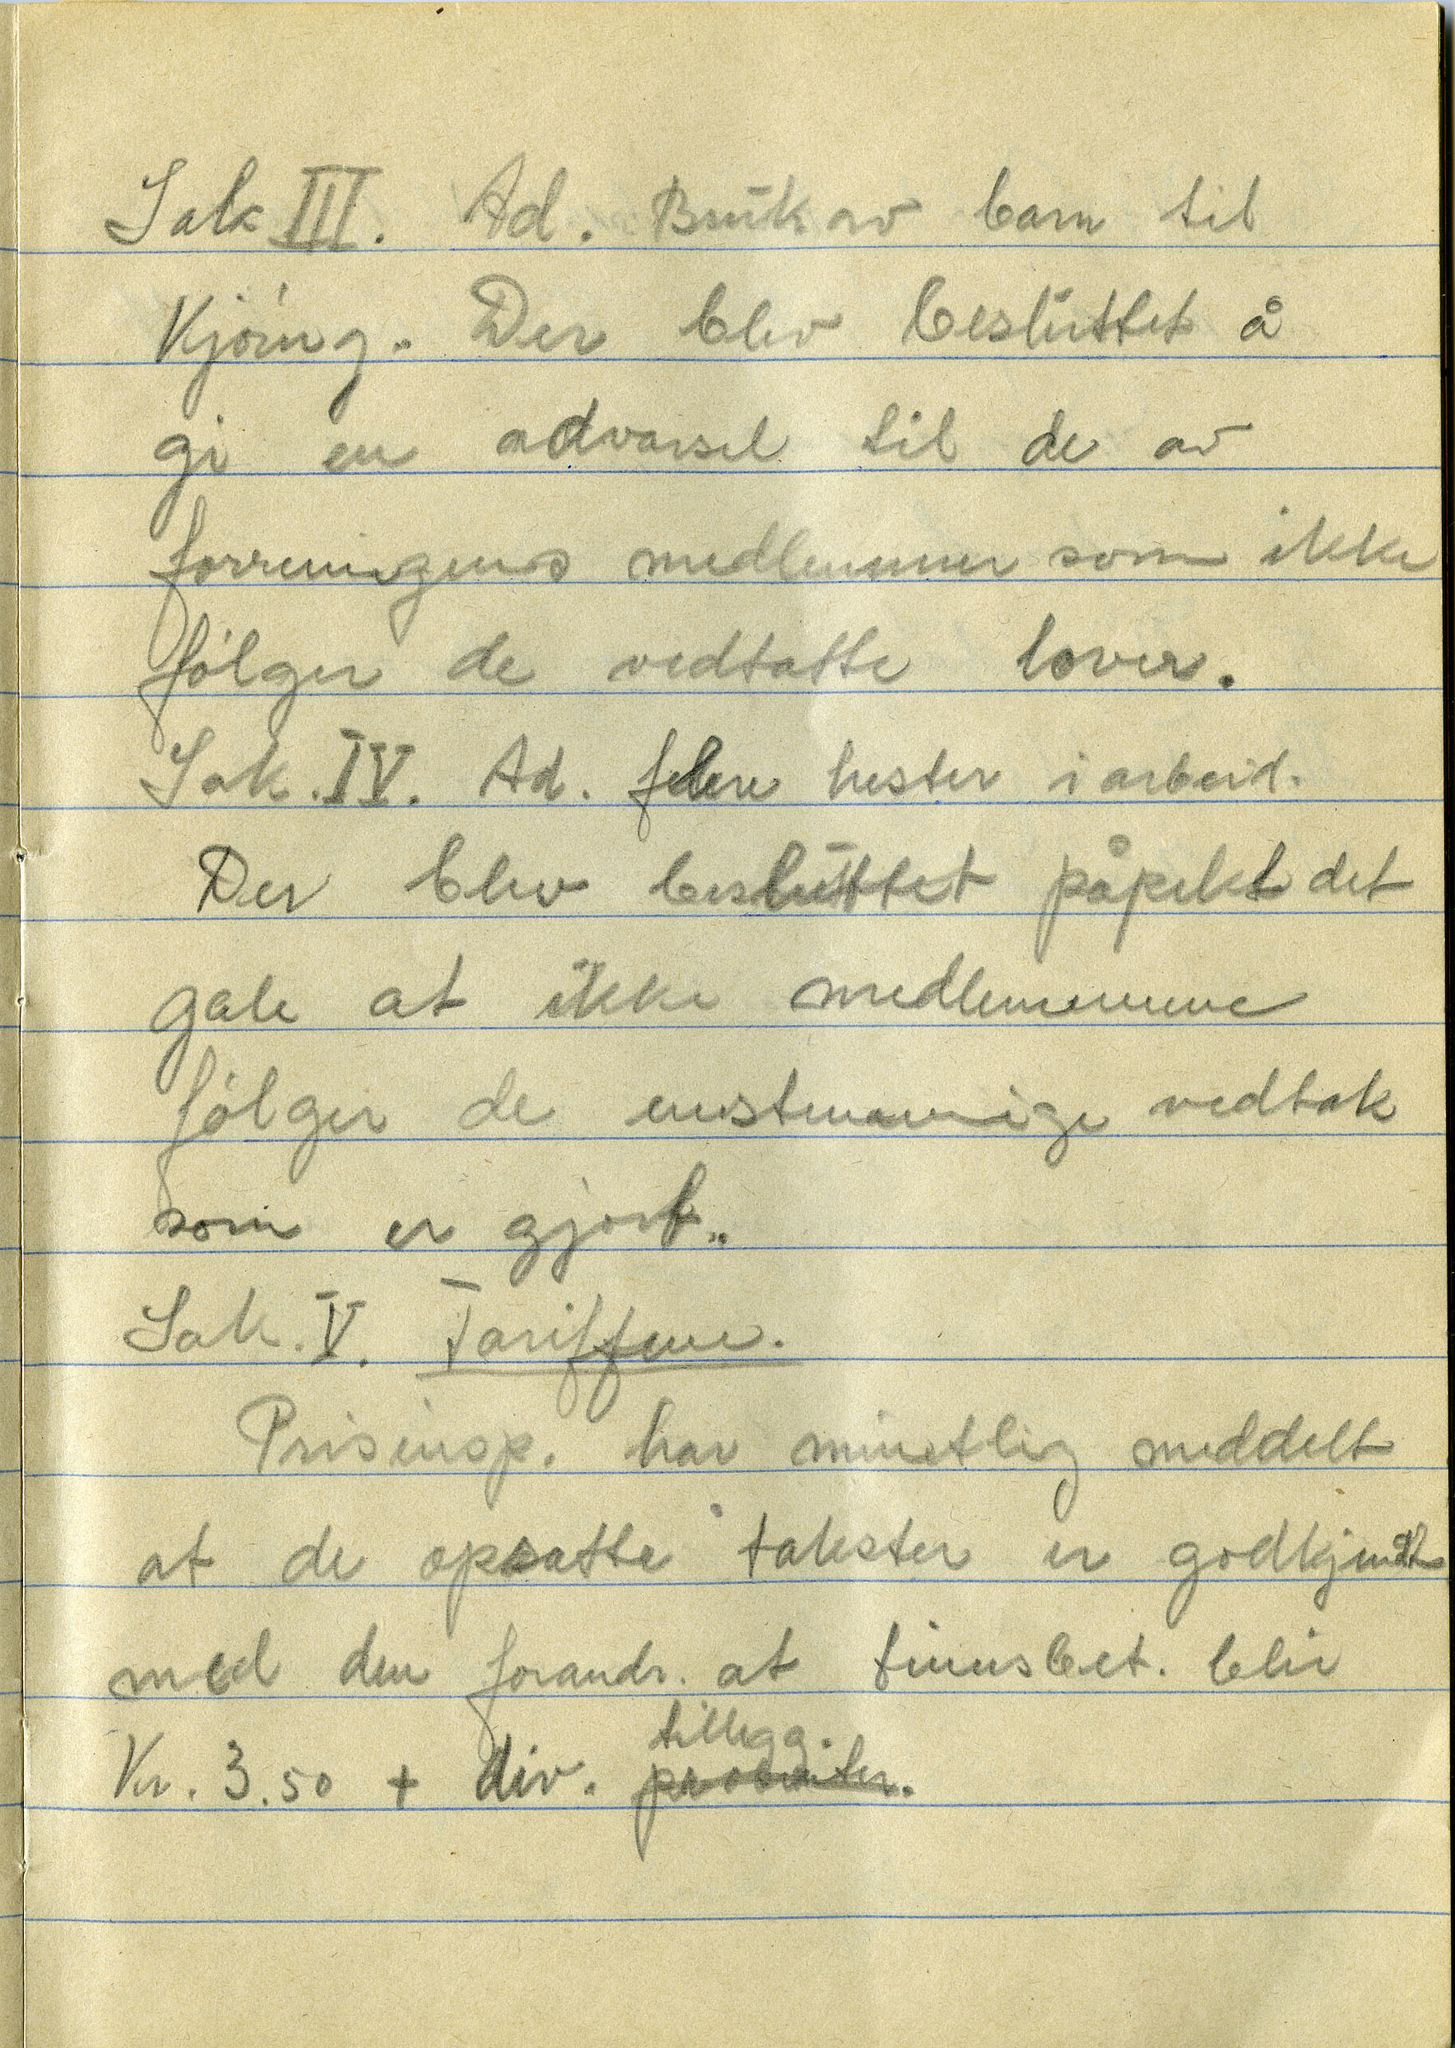 Sak III. Ad. Bruk av barn til
Kjøring. Der blev besluttet å
gi en advarsel til de av
forreningens medlemmer som ikke
følger de vedtatte lover.
Sak. IV. Ad. flere hester i arbeid.
Der blev besluttet påpekt det
gale at ikke medlemmene
følger de enstemmige vedtak
som er gjort..
Sak. V. Tariffene.
Prisinsp. har muntlig meddelt
at de opsatte takster er godkjendt
med den forandr. at timebet. blir
tillegg.
Kr. 3.50 + div. prosenter.